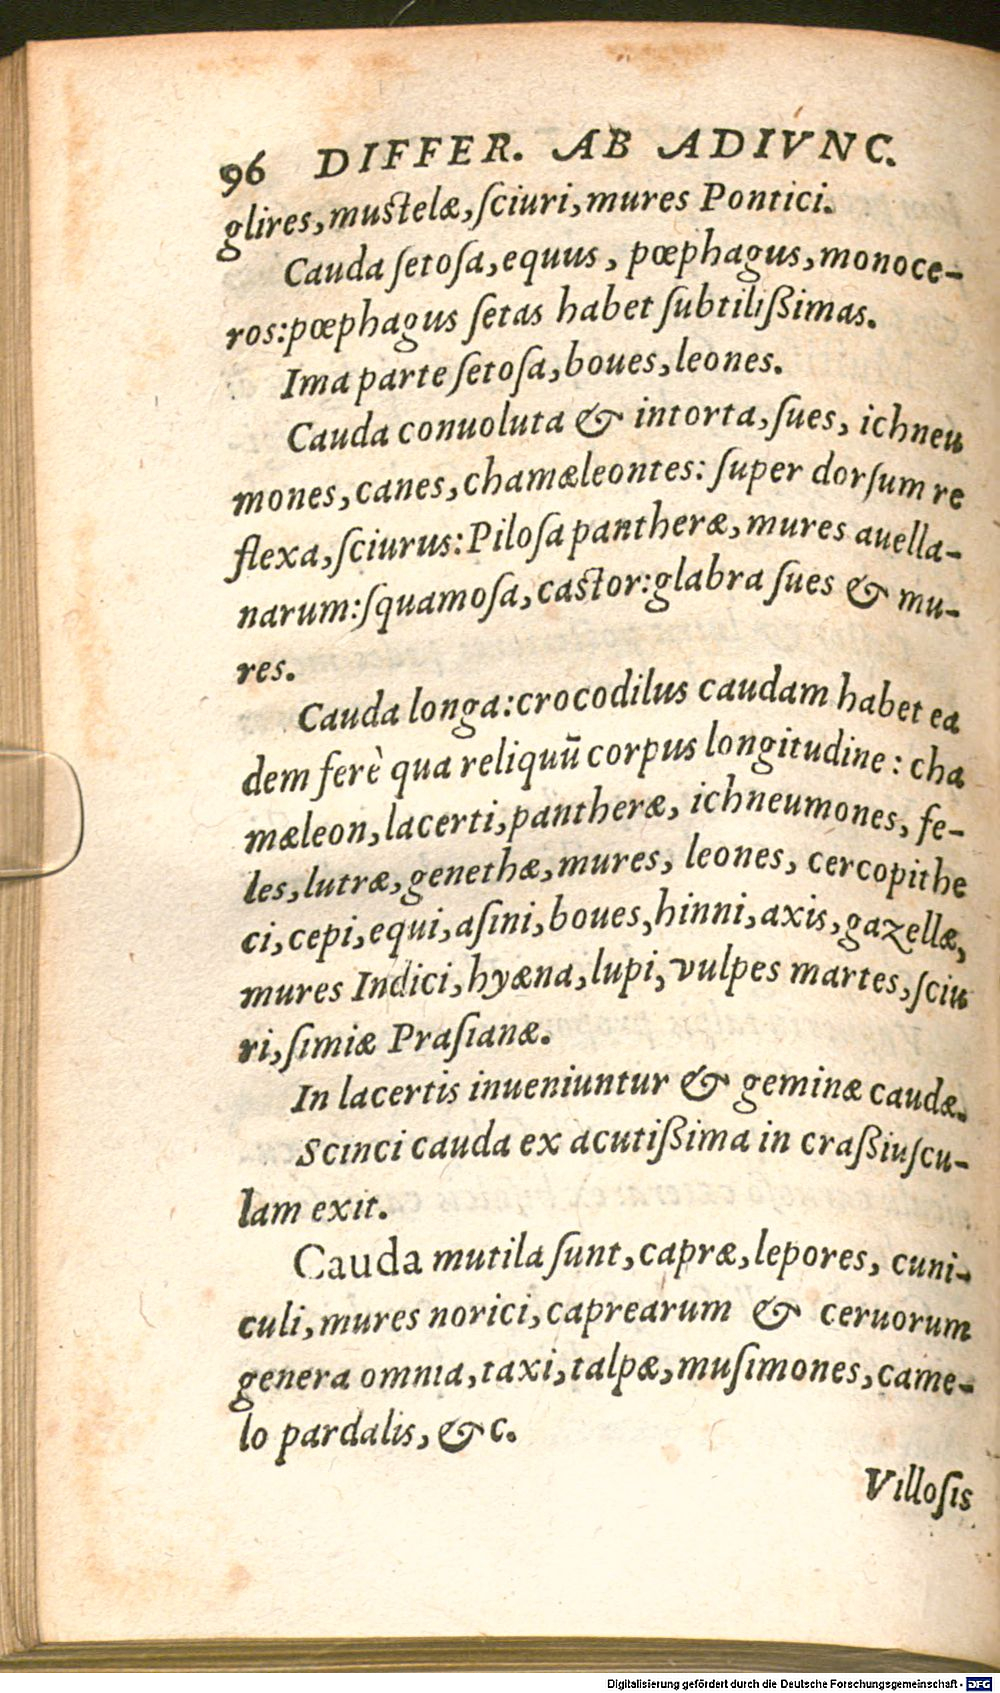 96 DIFFER. AB ADIVNC.
glires, mustelæ, ſciuri, mures Pontici.
Cauda ſetoſa, equus, pœphagus, monoce-
ros: pœphagus ſetas habet ſubtilißimas.
Ima parte ſetoſa, boues, leones.
Cauda conuoluta & intorta, ſues, ichneu
mones, canes, chamæleontes: ſuper dorſum re
flexa, ſciurus: Piloſa pantheræ, mures auella-
narum: ſquamoſa, castor: glabra ſues & mu-
res.
Cauda longa: crocodilus caudam habet ea
dem ferè qua reliquũ corpus longitudine: cha
mæleon, lacerti, pantheræ, ichneumones, fe-
les, lutræ, genethæ, mures, leones, cercopithe
ci, cepi, equi, aſini, boues, hinni, axis, gazellæ,
mures Indici, hyæna, lupi, vulpes martes, ſciu
ri, ſimiæ Praſianæ.
In lacertis inueniuntur & geminæ caudæ.
Scinci cauda ex acutißima in craßiuſcu-
lam exit.
Cauda mutila ſunt, capræ, lepores, cuni-
culi, mures norici, caprearum & ceruorum
genera omnia, taxi, talpæ, muſimones, came-
lo pardalis, &c.
Villoſis
Digitalisierung gefördert durch die Deutsche Forschungsgemeinschaft - DFG